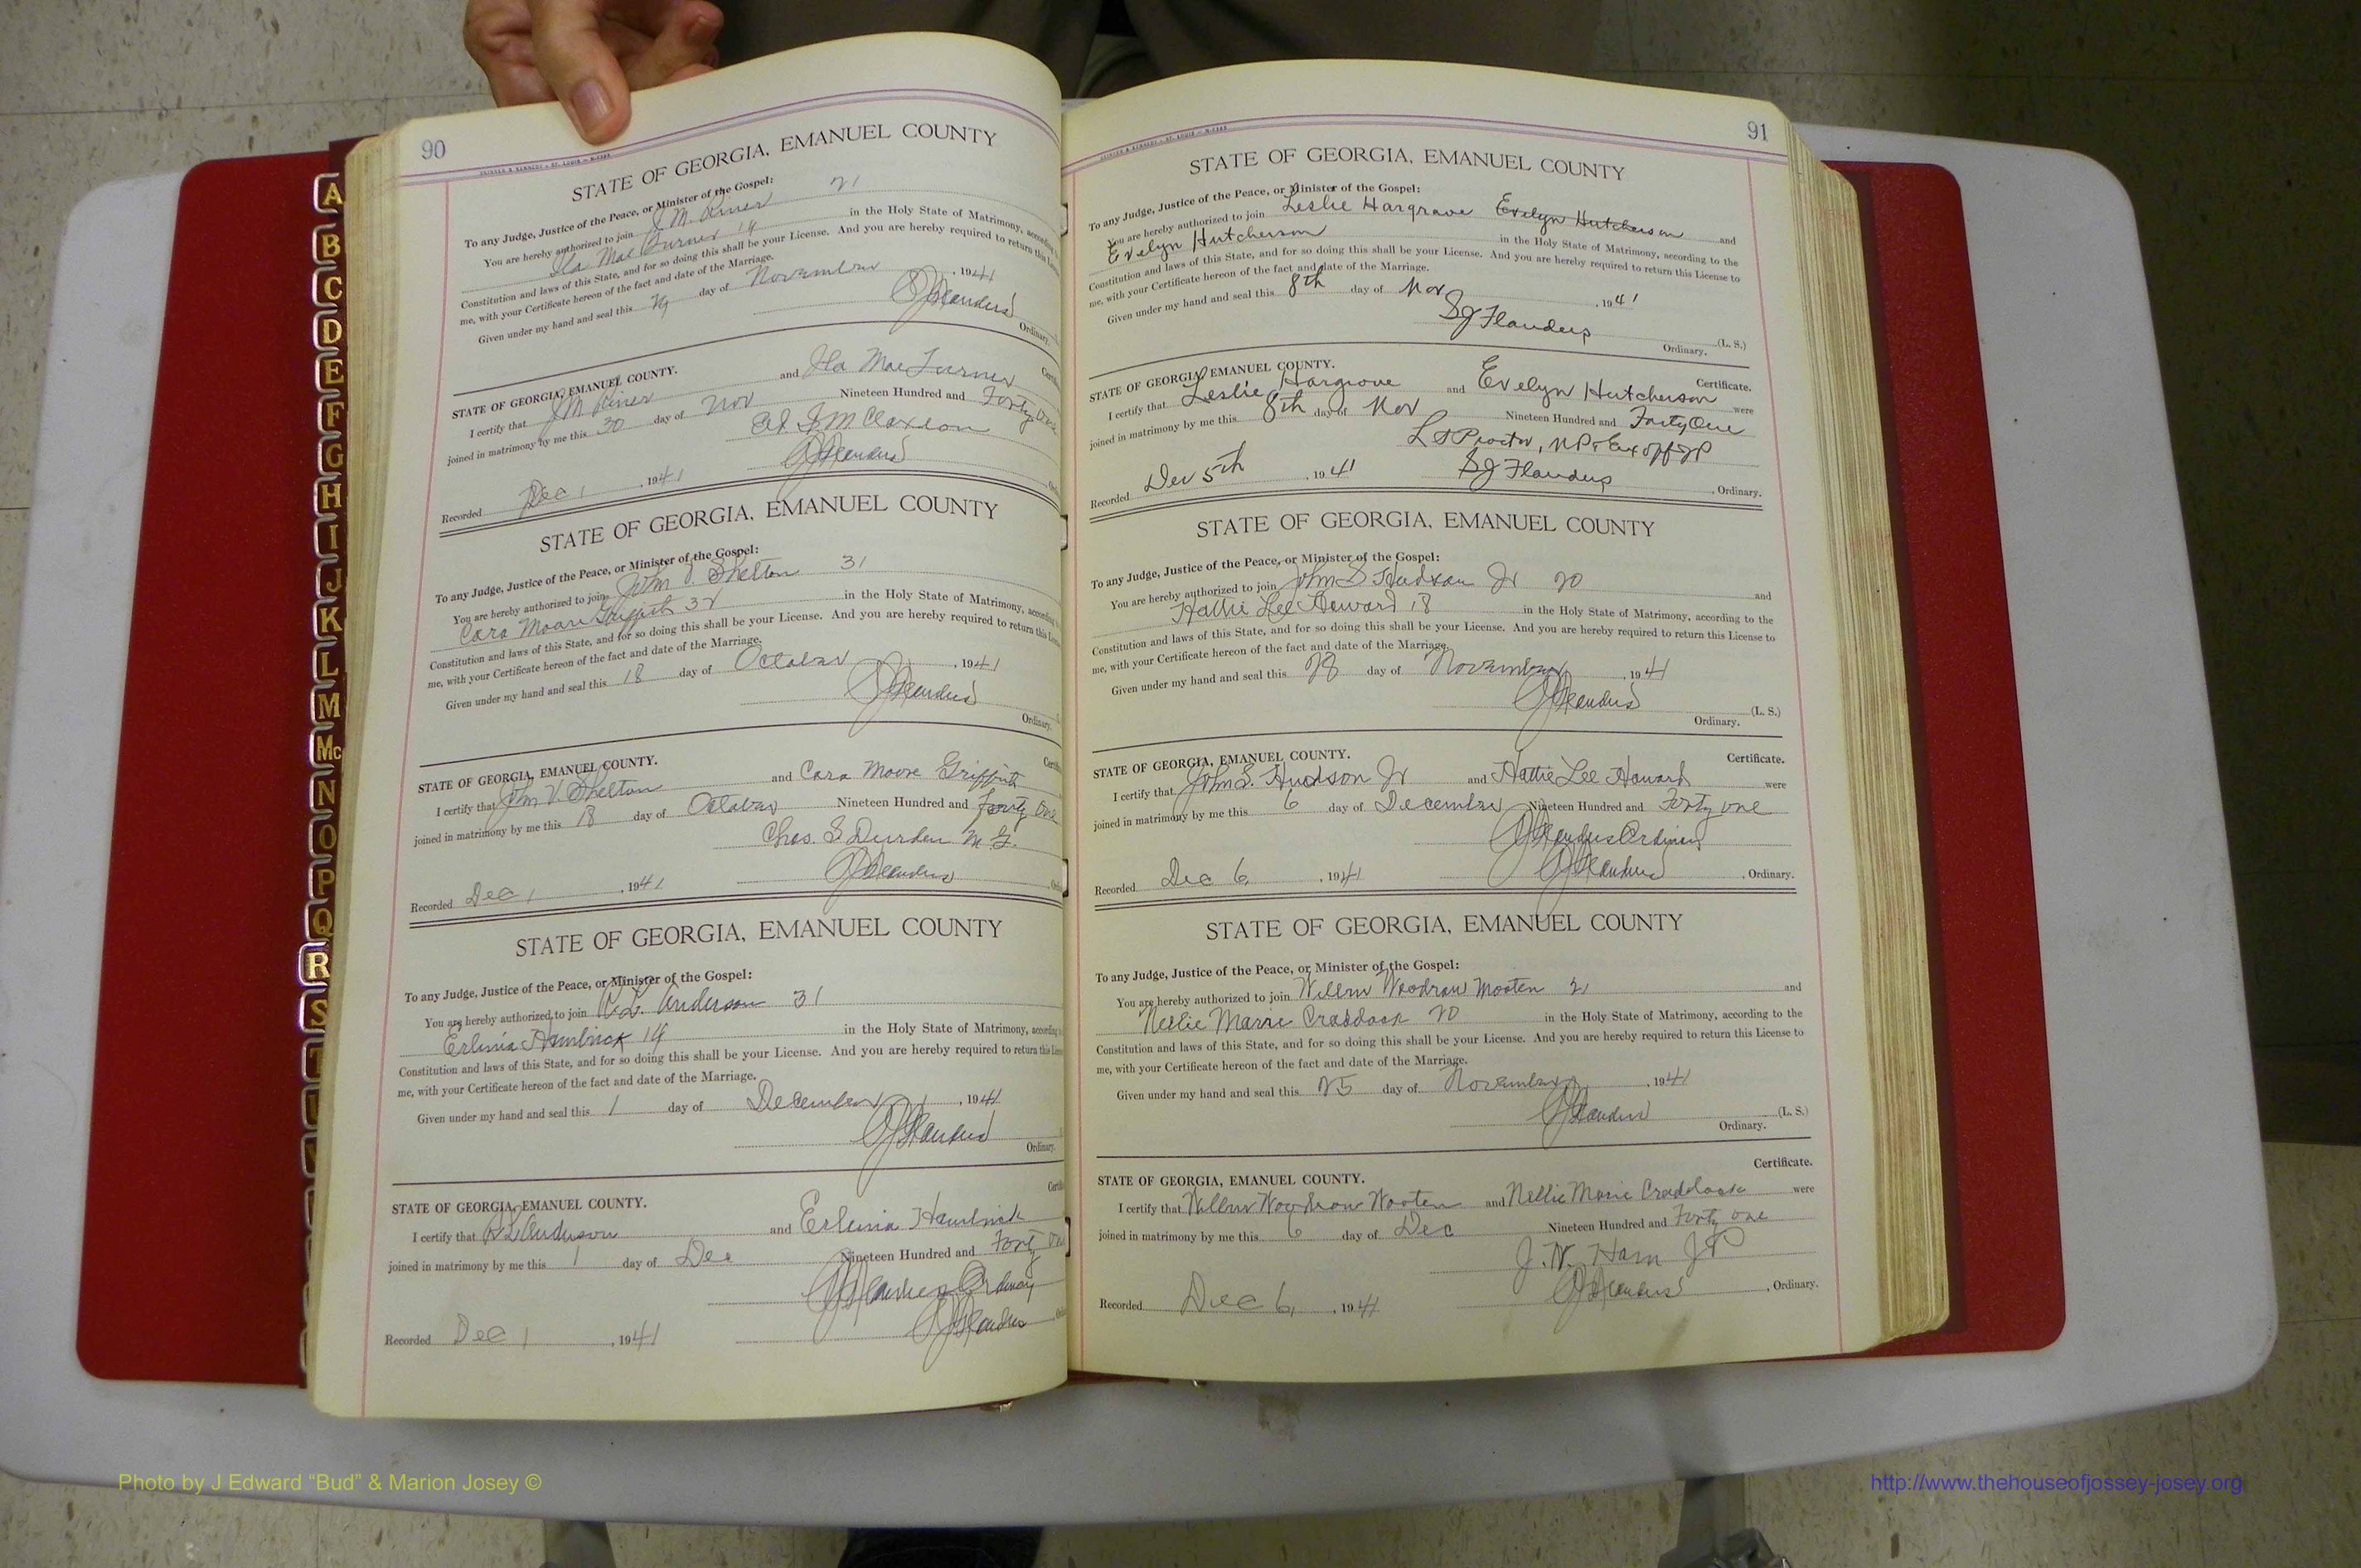 90
STATE OF GEORGIA, EMANUEL COUNTY
To any Judge, Justice of the Peace, or Minister of the Gospel:
You are hereby authorized to join J M Riner 21
Ila Mae Turner 19 in the Holy State of Matrimony, according
Constitution and laws of this State, and for so doing this shall be your License. And you are hereby required to return this
me, with your Certificate hereon of the fact and date of the Marriage.
Given under my hand and seal this day of November, 1941
Flanders
Ordinary.
STATE OF GEORGIA, EMANUEL COUNTY.
I certify that J M Riner and Ila Mae Turner
joined in matrimony by me this 30 day of Nov Nineteen Hundred and Forty One
M Claxton
Flanders
Recorded Dec 1, 1941
STATE OF GEORGIA, EMANUEL COUNTY
To any Judge, Justice of the Peace, or Minister of the Gospel:
You are hereby authorized to join John V. Shelton 31
Cara Moore Griffith 32 in the Holy State of Matrimony, according
Constitution and laws of this State, and for so doing this shall be your License. And you are hereby required to return this
me, with your Certificate hereon of the fact and date of the Marriage.
Given under my hand and seal this 18 day of October, 1941
Flanders
Ordinary.
STATE OF GEORGIA, EMANUEL COUNTY.
I certify that John V. Shelton and Cara Moore Griffith
joined in matrimony by me this 18 day of October Nineteen Hundred and forty One
Chas. S Durden M. G.
Flanders
Recorded Dec 1, 1941
STATE OF GEORGIA, EMANUEL COUNTY
To any Judge, Justice of the Peace, or Minister of the Gospel:
You are hereby authorized to join R. L. Anderson 31
Erlinia Hambrick 19 in the Holy State of Matrimony, according
Constitution and laws of this State, and for so doing this shall be your License. And you are hereby required to return this
me, with your Certificate hereon of the fact and date of the Marriage.
Given under my hand and seal this 1 day of December, 1941
Flanders
Ordinary.
STATE OF GEORGIA, EMANUEL COUNTY.
I certify that R L Anderson and Erlinia Hambrick
joined in matrimony by me this 1 day of Dec Nineteen Hundred and Forty One
Flanders Ordinary
Flanders
Recorded Dec 1, 1941
91
STATE OF GEORGIA, EMANUEL COUNTY
To any Judge, Justice of the Peace, or Minister of the Gospel:
You are hereby authorized to join Leslie Hargrove Evelyn Hutcherson and
Evelyn Hutcherson in the Holy State of Matrimony, according to the
Constitution and laws of this State, and for so doing this shall be your License. And you are hereby required to return this License to
me, with your Certificate hereon of the fact and date of the Marriage.
Given under my hand and seal this 8th day of Nov, 1941
Flanders (L. S.)
Ordinary.
STATE OF GEORGIA, EMANUEL COUNTY. Certificate.
I certify that Leslie Hargrove and Evelyn Hutcherson were
joined in matrimony by me this 8th day of Nov Nineteen Hundred and Forty One
L S Proctor, NP & Ex off JP
Flanders
Recorded Dec 5th, 1941, Ordinary.
STATE OF GEORGIA, EMANUEL COUNTY
To any Judge, Justice of the Peace, or Minister of the Gospel:
You are hereby authorized to join John S Hudson Jr 20 and
Hattie Lee Howard 18 in the Holy State of Matrimony, according to the
Constitution and laws of this State, and for so doing this shall be your License. And you are hereby required to return this License to
me, with your Certificate hereon of the fact and date of the Marriage.
Given under my hand and seal this 28 day of November, 1941
Flanders (L. S.)
Ordinary.
STATE OF GEORGIA, EMANUEL COUNTY. Certificate.
I certify that John S. Hudson Jr and Hattie Lee Howard were
joined in matrimony by me this 6 day of December Nineteen Hundred and Forty one
Flanders Ordinary
Flanders
Recorded Dec 6, 1941, Ordinary.
STATE OF GEORGIA, EMANUEL COUNTY
To any Judge, Justice of the Peace, or Minister of the Gospel:
You are hereby authorized to join Woodrow Wooten 21 and
Nellie Marie Craddock 20 in the Holy State of Matrimony, according to the
Constitution and laws of this State, and for so doing this shall be your License. And you are hereby required to return this License to
me, with your Certificate hereon of the fact and date of the Marriage.
Given under my hand and seal this 25 day of November, 1941
Flanders (L. S.)
Ordinary.
STATE OF GEORGIA, EMANUEL COUNTY. Certificate.
I certify that Woodrow Wooten and Nellie Marie Craddock were
joined in matrimony by me this 6 day of Dec Nineteen Hundred and Forty one
J. N. Ham JP
Flanders
Recorded Dec 6, 1941, Ordinary.
A
B
C
D
E
F
G
H
I
J
K
L
M
Mc
N
O
P
Q
R
S
Photo by J Edward “Bud” & Marion Josey ©
http://www.thehouseofjossey-josey.org